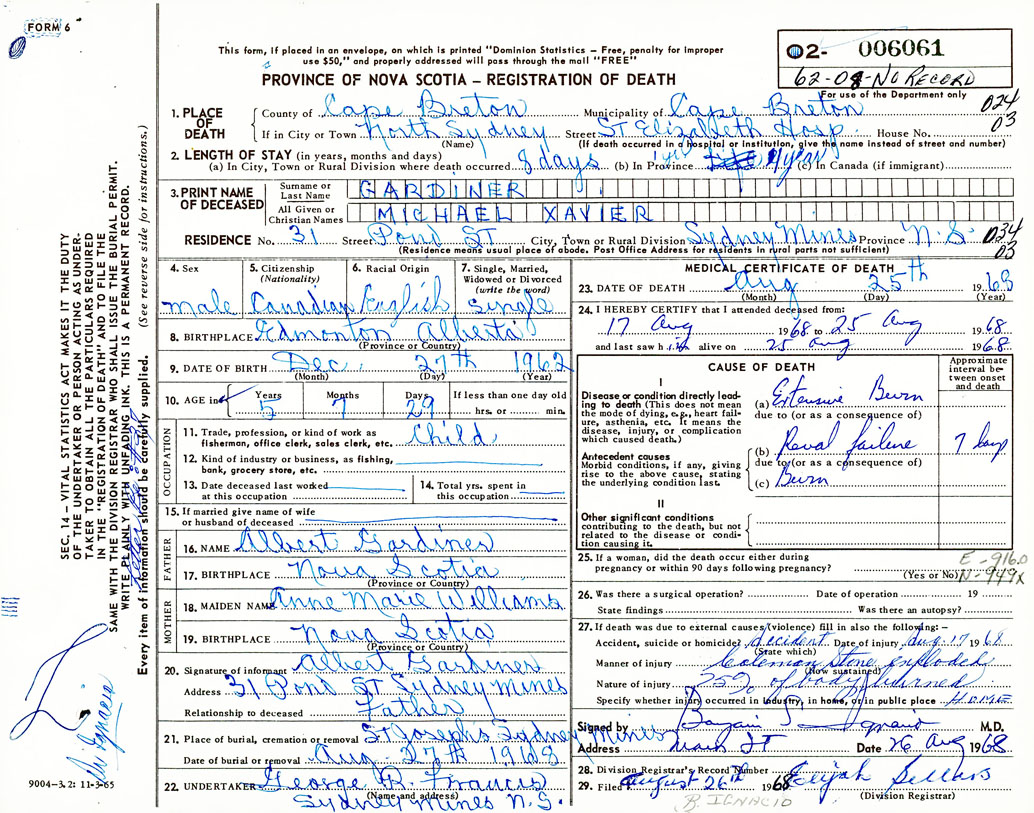 FORM 6
This form, if placed in an envelope, on which is printed "Dominion Statistics – Free, penalty for improper
use $50," and properly addressed will pass through the mail "FREE"
PROVINCE OF NOVA SCOTIA – REGISTRATION OF DEATH
02- 006061
62-08-No RECORD
For use of the Department only
024
03
1. PLACE OF DEATH
County of Cape Breton Municipality of Cape Breton
If in City or Town North Sydney Street St Elizabeth Hosp. House No.
(Name) (If death occurred in a hospital or institution, give the name instead of street and number)
2. LENGTH OF STAY (in years, months and days)
(a) In City, Town or Rural Division where death occurred 8 days (b) In Province 1 yr 4 years (c) In Canada (if immigrant)
3. PRINT NAME OF DECEASED
Surname or Last Name GARDINER
All Given or Christian Names MICHAEL XAVIER
RESIDENCE No. 31 Street Pond ST City, Town or Rural Division Sydney Mines Province N.S.
034
03
(Residence means usual place of abode. Post Office Address for residents in rural parts not sufficient)
4. Sex male
5. Citizenship (Nationality) Canadian
6. Racial Origin English
7. Single, Married, Widowed or Divorced (write the word) Single
8. BIRTHPLACE Edmonton Alberta
(Province or Country)
9. DATE OF BIRTH Dec. 27th 1962
(Month) (Day) (Year)
10. AGE in Years 5 Months 7 Days 29 If less than one day old hrs. or min.
OCCUPATION
11. Trade, profession, or kind of work as fisherman, office clerk, sales clerk, etc. Child
12. Kind of industry or business, as fishing, bank, grocery store, etc.
13. Date deceased last worked at this occupation
14. Total yrs. spent in this occupation
15. If married give name of wife or husband of deceased
FATHER
16. NAME Albert Gardiner
17. BIRTHPLACE Nova Scotia
(Province or Country)
MOTHER
18. MAIDEN NAME Anne Marie Williams
19. BIRTHPLACE Nova Scotia
(Province or Country)
20. Signature of informant Albert Gardiner
Address 31 Pond ST Sydney Mines
Relationship to deceased Father
21. Place of burial, cremation or removal St Josephs Sydney Mines
Date of burial or removal Aug 27th 1968
22. UNDERTAKER George R. Francis
(Name and address)
Sydney Mines N.S.
MEDICAL CERTIFICATE OF DEATH
23. DATE OF DEATH Aug 25th 1968
(Month) (Day) (Year)
24. I HEREBY CERTIFY that I attended deceased from:
17 Aug 1968 to 25 Aug 1968
and last saw him alive on 25 Aug 1968
CAUSE OF DEATH
Approximate interval between onset and death
I
Disease or condition directly leading to death (This does not mean the mode of dying, e.g., heart failure, asthenia, etc. It means the disease, injury, or complication which caused death.)
(a) Extensive Burn
due to (or as a consequence of)
Antecedent causes
Morbid conditions, if any, giving rise to the above cause, stating the underlying condition last.
(b) Renal failure 7 days
due to (or as a consequence of)
(c) Burn
II
Other significant conditions contributing to the death, but not related to the disease or condition causing it.
25. If a woman, did the death occur either during pregnancy or within 90 days following pregnancy?
(Yes or No)
E-916.0
N-949X
26. Was there a surgical operation? Date of operation 19
State findings Was there an autopsy?
27. If death was due to external causes (violence) fill in also the following: –
Accident, suicide or homicide? accident Date of injury Aug. 17 1968
(State which)
Manner of injury Coleman Stove exploded
(How sustained)
Nature of injury 25% of body burned
Specify whether injury occurred in industry, in home, or in public place HOME
Signed by Ignacio M.D.
Address Date 26 Aug 1968
28. Division Registrar's Record Number
29. Filed August 26th 1968 Elijah Sellars
(Division Registrar)
B. IGNACIO
SEC. 14 – VITAL STATISTICS ACT MAKES IT THE DUTY
OF THE UNDERTAKER OR PERSON ACTING AS UNDER-
TAKER TO OBTAIN ALL THE PARTICULARS REQUIRED
IN THE "REGISTRATION OF DEATH" AND TO FILE THE
SAME WITH THE DIVISION REGISTRAR WHO SHALL ISSUE THE BURIAL PERMIT.
WRITE PLAINLY WITH UNFADING INK. THIS IS A PERMANENT RECORD.
Every item of information should be carefully supplied. (See reverse side for instructions.)
9004-3.2: 11-3-65